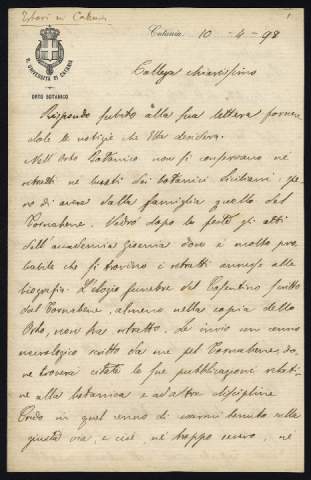 Erbari di Catania
1
Catania, 10-4-98
R. UNIVERSITÀ DI CATANIA
ORTO BOTANICO
Collega chiarissimo
Rispondo subito alla sua lettera fornen
dole le notizie che Ella desidera.
Nell'Orto Botanico non si conservano nè
ritratti nè busti dei botanici Siciliani, spe
ro di avere dalla famiglia quello del
Tornabene. Vedrò dopo le feste gli atti
dell'accademia Gioenia dove è molto pro
babile che si trovino i ritratti annessi alle
biografie. L'elogio funebre del Cosentino scritto
dal Tornabene, almeno nella copia dello
Orto, non ha ritratto. Le invio un cenno
necrologico scritto da me pel Tornabene, do
ve troverà citate le sue pubblicazioni relati
ve alla botanica e ad altre discipline
Credo in quel cenno di essermi tenuto sulla
giusta via, e cioè, nè troppo severo, nè